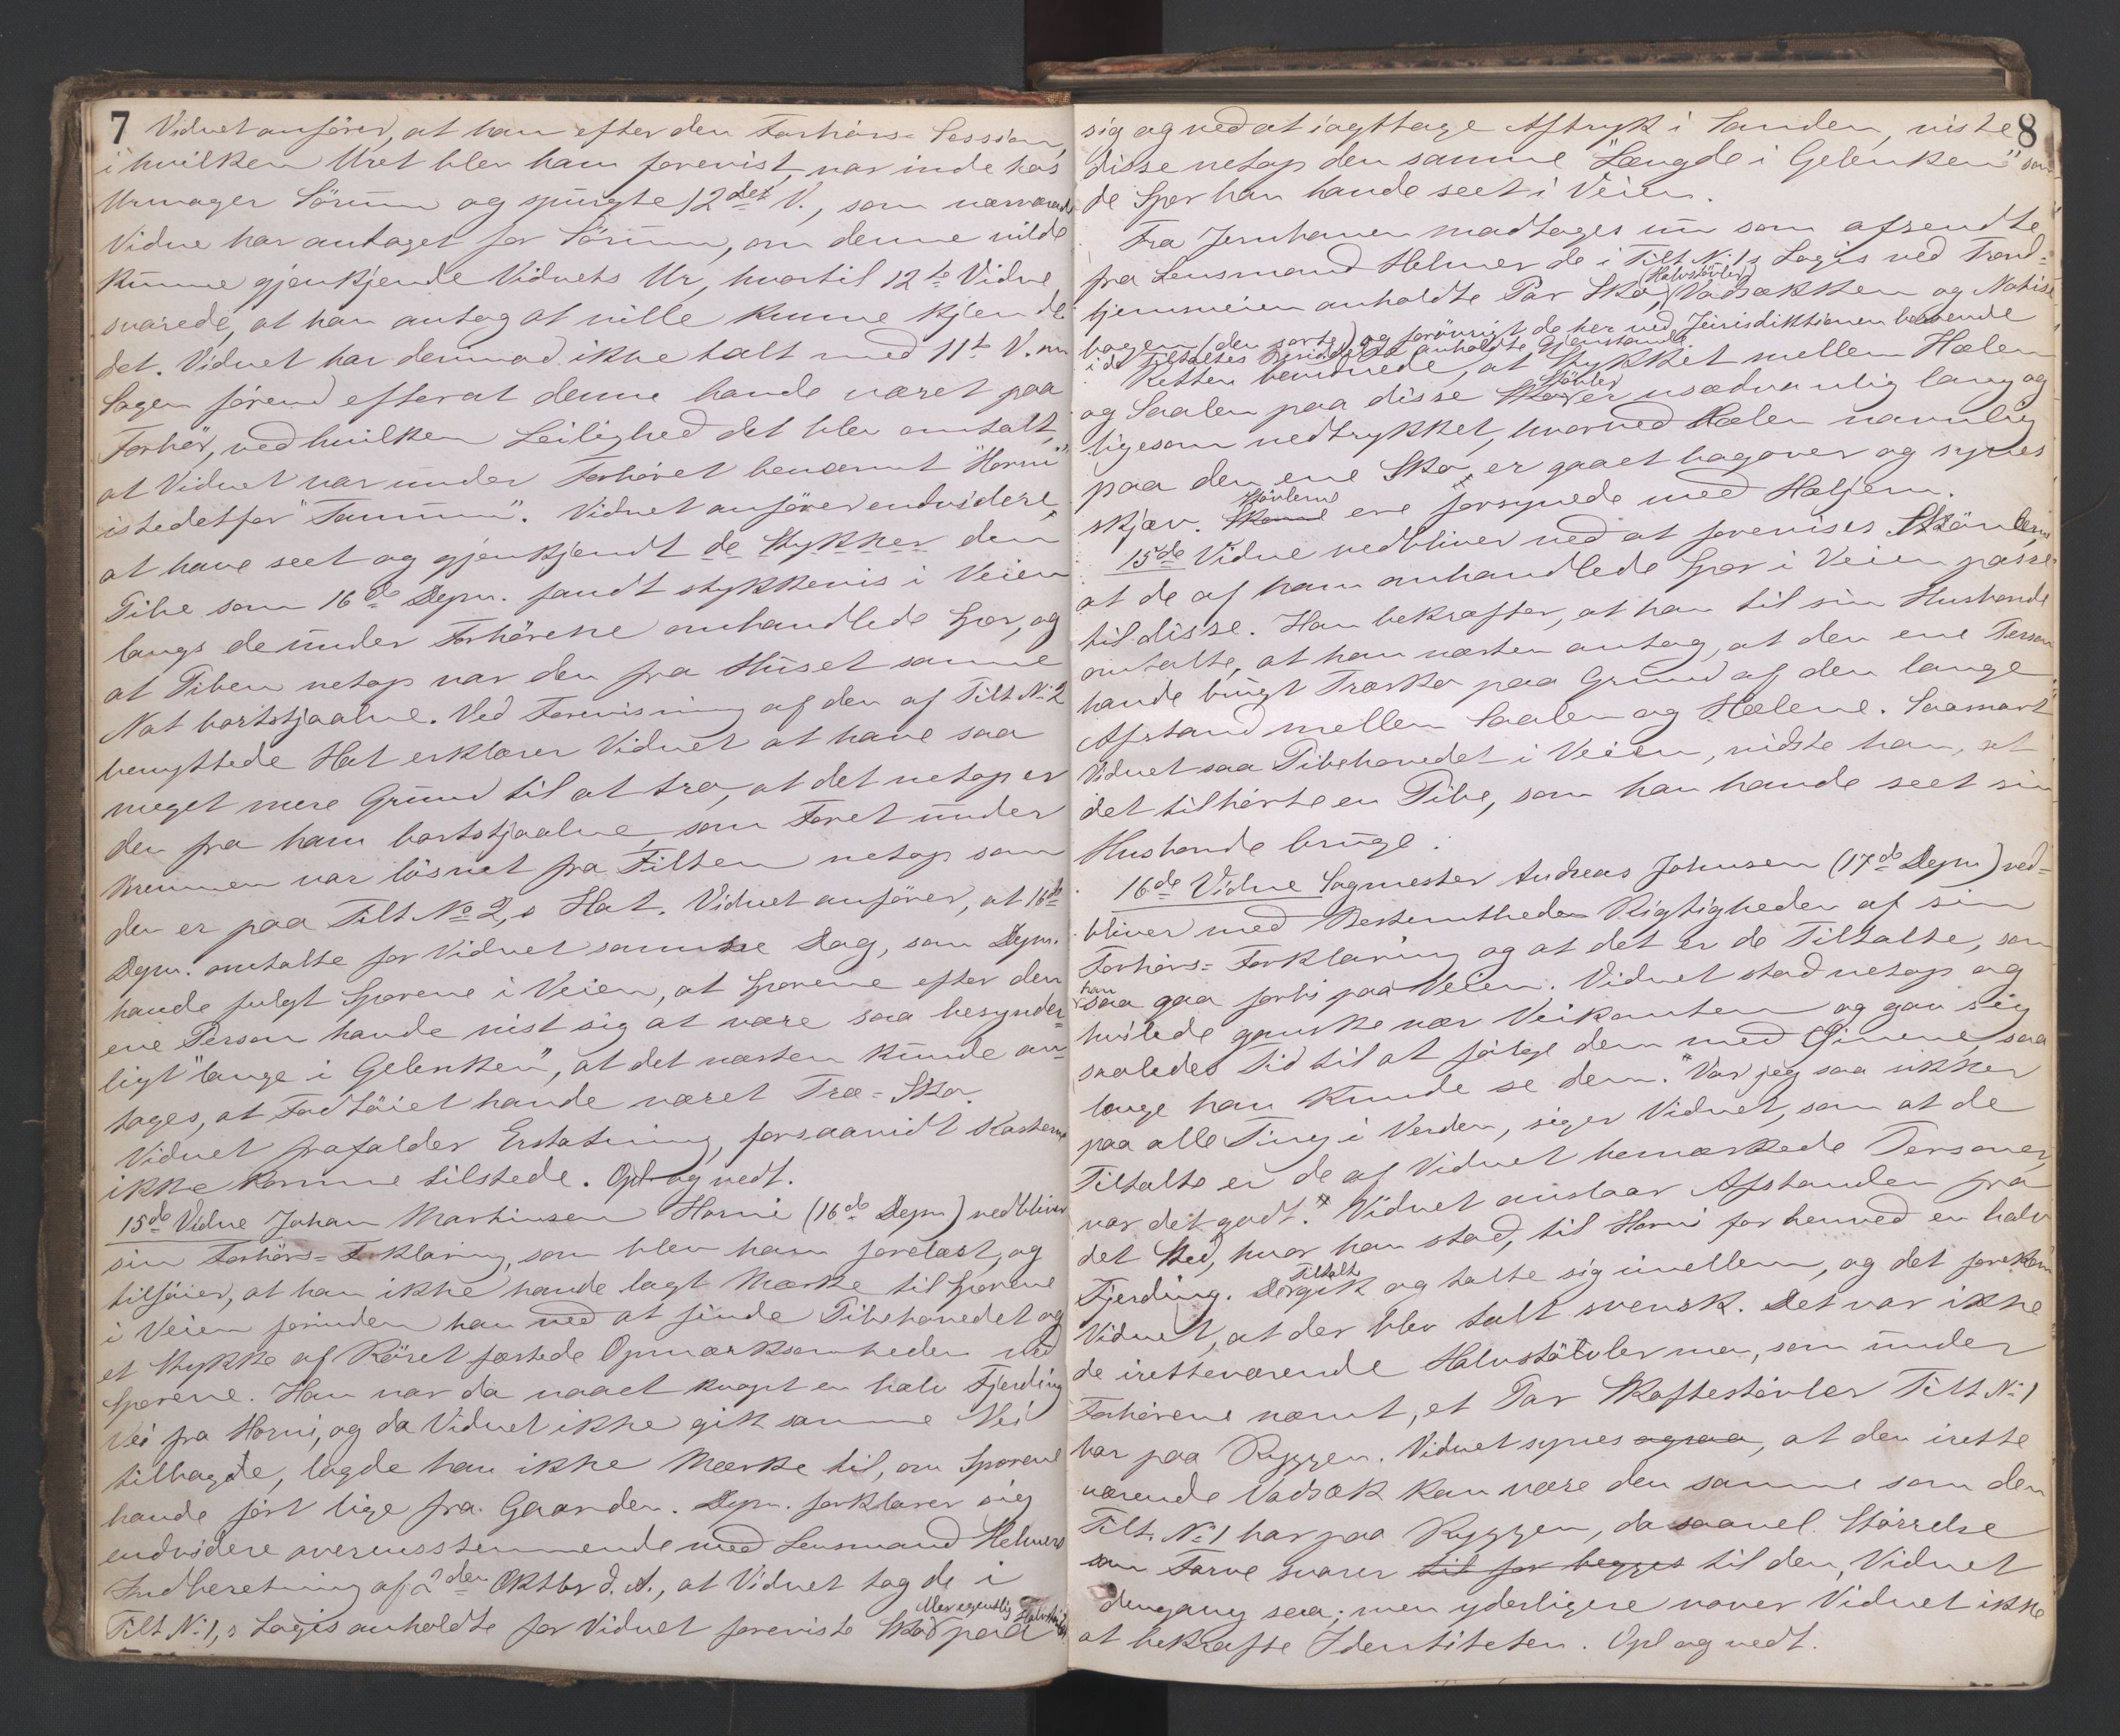 7
Vidnet anfører, at han efter den Forhørs-Session,
i hvilken Uret blev ham forevist, var inde hos
Urmager Sörum og spurgte 12det V., som nærværende
Vidne har antaget for Sörum, om denne vilde
kunne gjenkjende Vidnets Ur, hvortil 12te Vidne
svarede, at han antog at ville kunne kjende
det. Vidnet har derimod ikke talt med 11te V. om
Sagen förend efterat denne havde været paa
Forhör, ved hvilken Leilighed det blev omtalt,
at Vidnet var under Forhöret benævnt "Horni"
istedetfor "Tammun". Vidnet anförer endvidere,
at have seet og gjenkjendt de Stykker den
Pibe som 16de Depn. fandt stykkevis i Veien
langs de under Forhörene omhandlede Spor, og
at Piben netop var den fra Huset samme
Nat bortstjaalne. Ved Forevisning af den af Tilt No 2
benyttede Hat erklærer Vidnet at have saa
meget mere Grund til at tro, at det netop er
den fra ham bortstjaalne, som Foret under
Bremmen var lösnet fra Filten netop som
den er paa Tilt No 2,s Hat. Vidnet anförer, at 16de
Depn. omtalte for Vidnet samme Dag, som Depn.
havde fulgt Sporene i Veien, at Sporene efter den
ene Person havde vist sig at være saa besynder-
ligt "lange i Gelenken", at det næsten kunde an-
tages, at Fodtöiet havde været Træ-Sko.
Vidnet frafalder Erstatning, forsaavidt Kosterne
ikke komme tilstede. Opl og vedt.
15de Vidne Johan Martinsen Horni (16de Depn) vedbliver
sin Forhörs-Forklaring, som blev ham forelæst, og
tilföier, at han ikke havde lagt Mærke til Sporene
i Veien forinden han ved at finde Pibehovedet og
et Stykke af Röret fæstede Opmærksomheden ved
Sporene. Han var da naaet knapt en halv Fjerding
Vei fra Horni, og da Vidnet ikke gik samme Vei
tilbage, lagde han ikke Mærke til, om Sporene
havde fört lige fra Gaarden. Depn. forklarer sig
endvidere overensstemmende med Lensmand Helmers
Indberetning af 2den Oktbr d. A., at Vidnet tog de i
Tilt No 1,s Logis anholdte for Vidnet foreviste Sko (eller egentlig Halvstövler) paa
8
sig og ved at iagttage Aftryk i Sanden, viste
disse netop den samme "Længde i Gelenken" som
de Spor han havde seet i Veien.
Fra Jernbanen modtoges nu som afsendte
fra Lensmand Helmer de i Tilt No 1,s Logis ved Trond-
hjemsveien anholdte Par Sko, (Halvstövler) Vadsækken og Notits-
bogen (den sorte) og forövrigt de her ved Jurisdiktionen beroende
i de Tiltaltes anholdte Gjenstande.
Retten bemærkede, at Stykket mellem Hælen
og Saalen paa disse Stövler er usædvanlig lang og
ligesom nedtrykket, hvorved Hælen navnlig
paa den ene Sko, er gaaet bagover og synes
skjæv. Skoene Stövlerne ere forsynede med Hæljern.
15de Vidne vedbliver ved at forevises Stövlerne
at de af ham omhandlede Spor i Veien passe
til disse. Han bekræfter, at han til sin Husbonde
omtalte, at han næsten antog, at den ene Person
havde brugt Træsko paa Grund af den lange
Afstand mellem Saalen og Hælene. Saasnart
Vidnet saa Pibehovedet i Veien, vidste han, at
det tilhörte en Pibe, som han havde seet sin
Husbonde bruge.
16de Vidne Sagmester Andreas Johnsen (17de Depn) ved-
bliver med Bestemthed Rigtigheden af sin
Forhörs-Forklaring og at det er de Tiltalte, som
han saa gaa forbi paa Veien. Vidnet stod netop og
hvilede ganske nær Veikanten og gav sig
saaledes Tid til at fölge dem med Öinene saa
længe han kunde se dem. "Var jeg saa sikker
paa alle Ting i Verden, siger Vidnet, som at de
Tiltalte er de af Vidnet bemærkede Personer,
var det godt." Vidnet anslaar Afstanden fra
det Sted, hvor han stod, til Horni for henved en halv
Fjerding. Tiltalte gik og talte sig imellem, og det forekom
Vidnet, at der blev talt svensk. Det var ikke
de iretteværende Halvstövler men, som under
Forhörene nævnt, et Par Skaftestövler Tilt No 1
bar paa Ryggen. Vidnet synes ogsaa, at den irette
værende Vadsæk kan være den samme som den
Tilt. No 1 bar paa Ryggen, da saavel Störrelse
som Farve svarer til for begges til den, Vidnet
dengang saa; men yderligere vover Vidnet ikke
at bekræfte Identiteten. Opl og vedt.